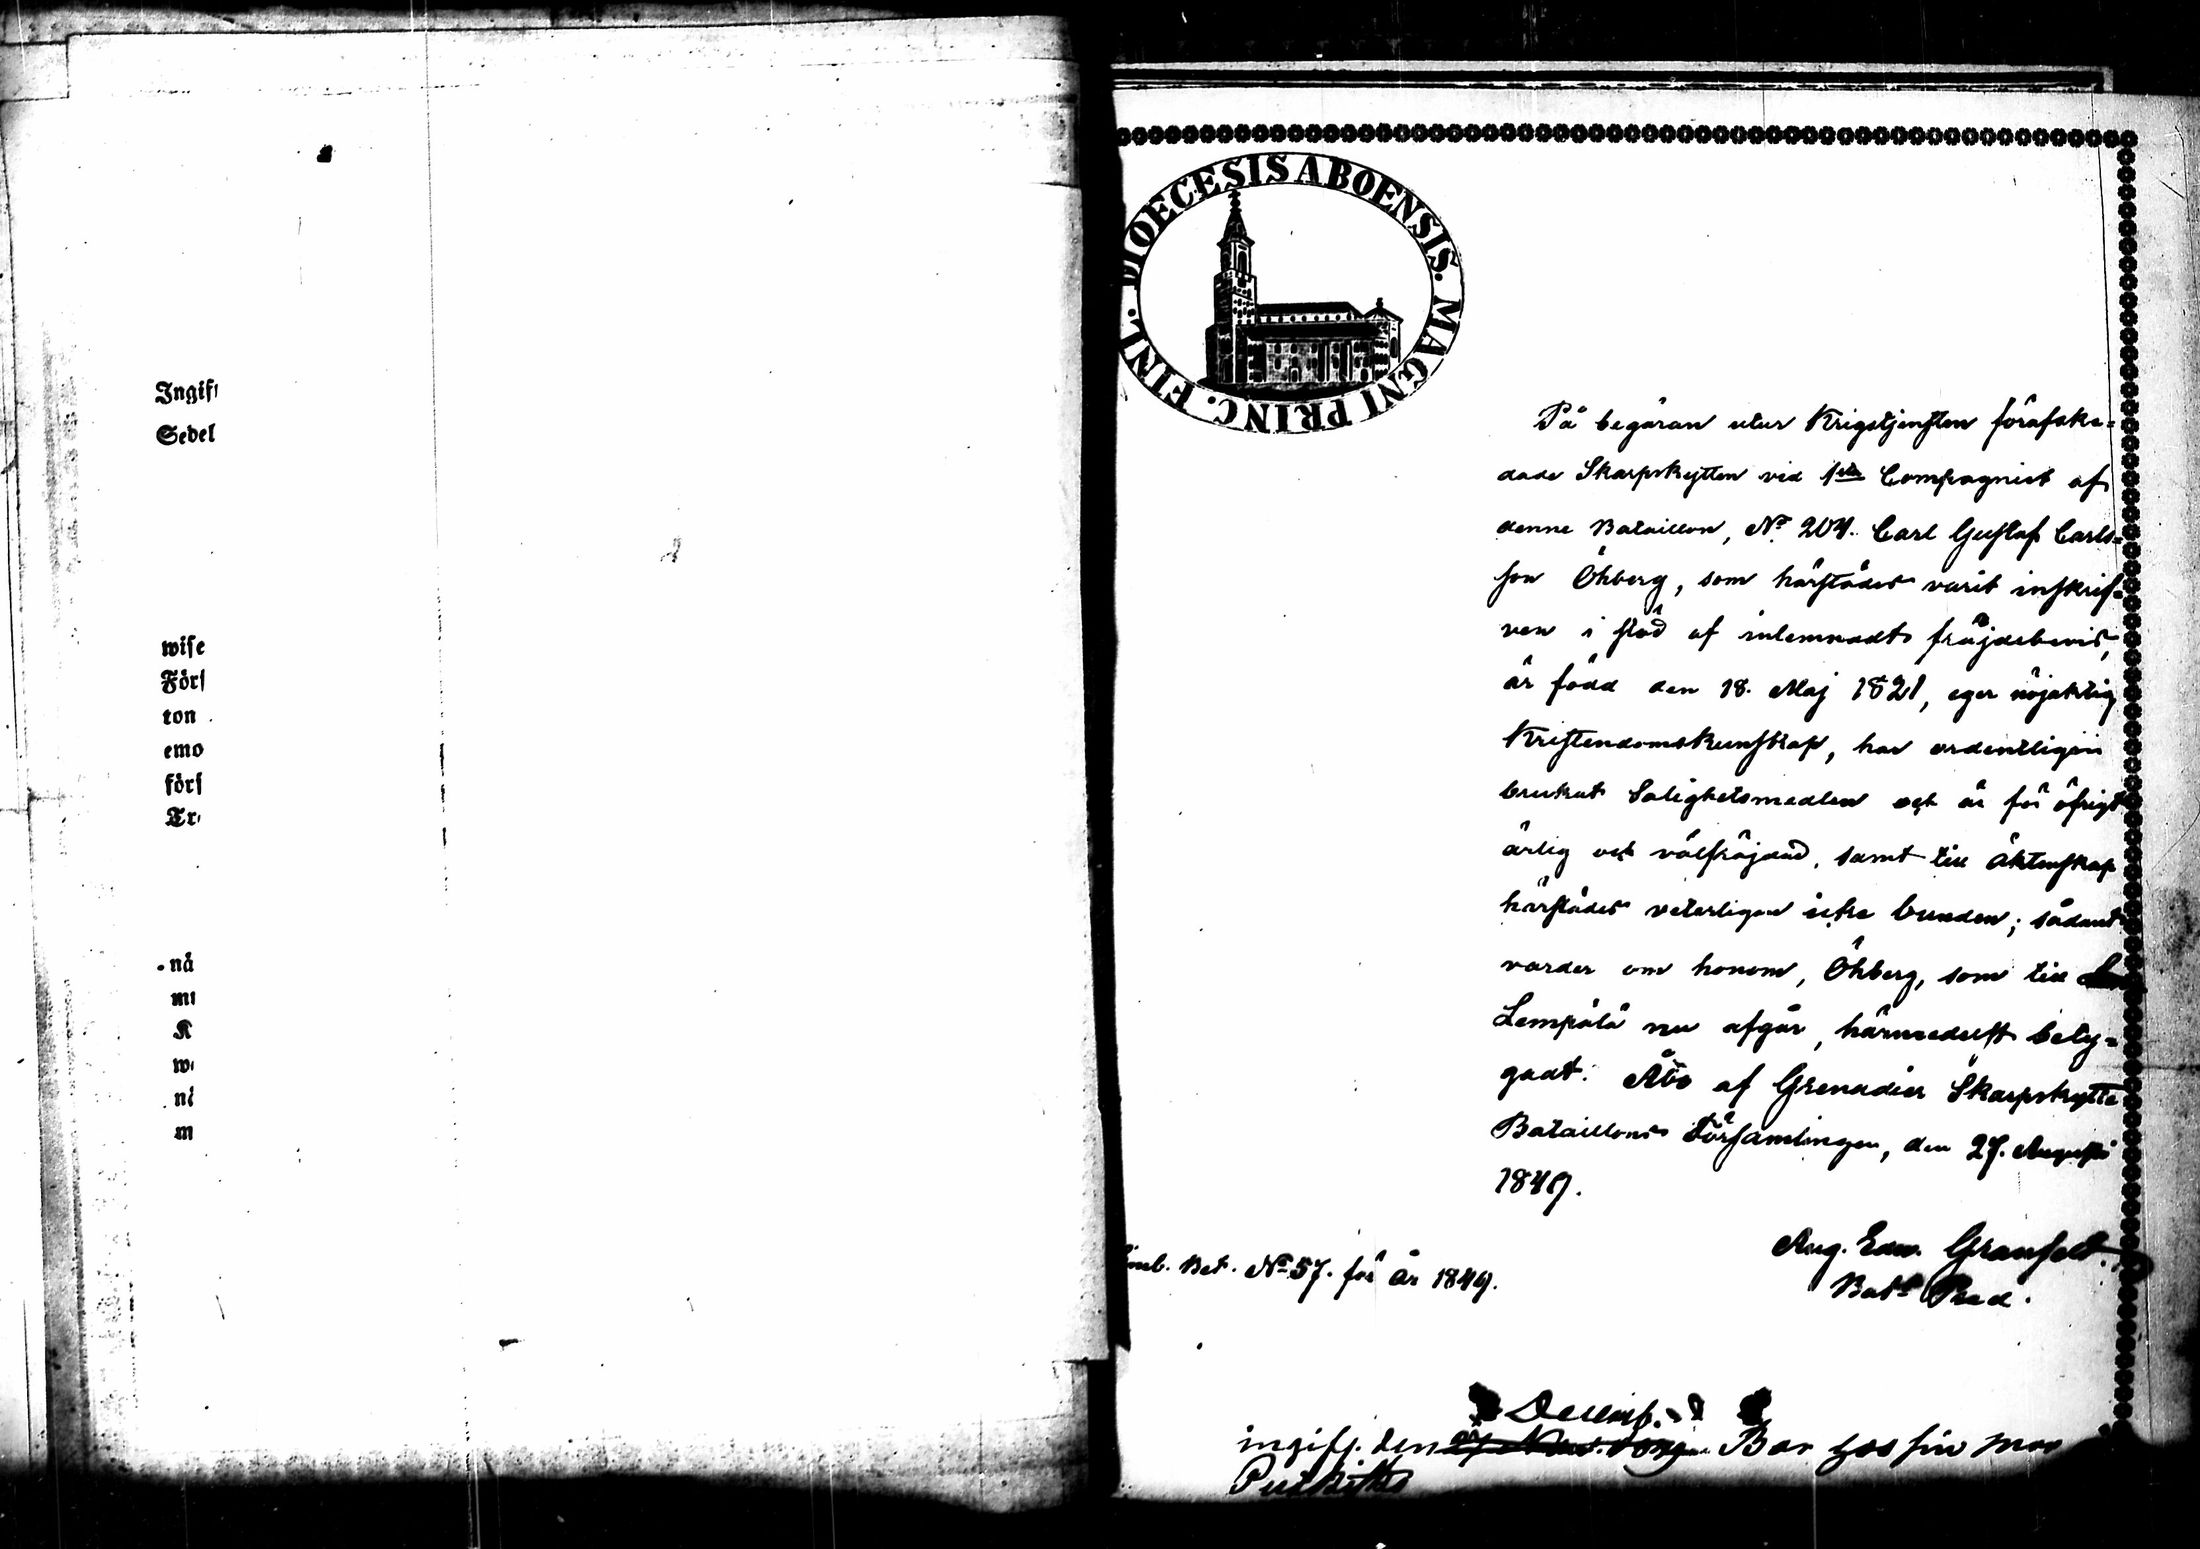 Ingif
Sedel
wise
Förs
ton
emo
förs
Tr
nå
m
K
w
n
m
DIOECESIS ABOENSIS. MAGNI PRINC. FINL.
På begäran utur Krigstjensten förafske=
dade Skarpskytten vid 1sta Compagniet af
denne Bataillon, No 204. Carl Gustaf Carls=
son Öhberg, som härstädes varit inskrif=
ven i stöd af inlemnadt fräjdebevis,
är född den 18. Maj 1821, eger nöjaktig
Kristendomskunskap, har ordentligen
brukat Salighetsmedlen och är för öfrigt
ärlig och välfräjdad, samt till äktenskap
härstädes veterligen icke bunden; sådant
varder om honom, Öhberg, som till
Lempälä nu afgår, härmedelst bety=
gadt. Åbo af Grenadier Skarpskytte
Bataillons Församlingen, den 27. Augusti
1849.
Aug. Edw. Granfelt.
Batns Pred.
Bet. No 57. för år 1849.
Decemb.
ingift. den Bor hos sin mor